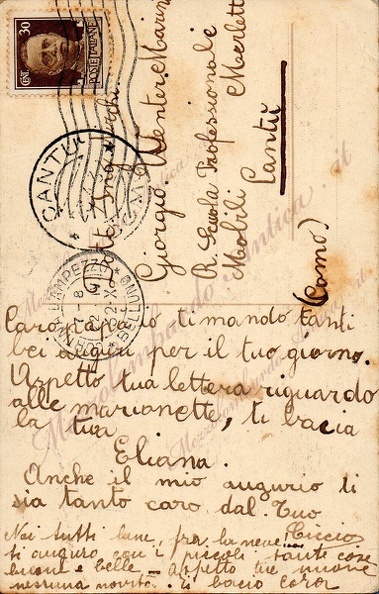 CENT 30
POSTE ITALIANE
CANTU
CORTINA D'AMPEZZO
BELLUNO
Giorgio Wenter Marini
R. Scuola Professionale
Mobili Merletti
Cantù
(Como)
Caro papa io ti mando tanti
bei auguri per il tuo giorno.
Aspetto tua lettera riguardo
alle marionette, ti bacia
la tua
Eliana.
Anche il mio augurio ti
sia tanto caro dal Tuo
Ciccio
Noi tutti bene, fra la neve
ti auguro con i piccoli tante cose
buone e belle - aspetto tue nuove
nessuna novità. ti bacio cara
Mezzolombardo Antica . it